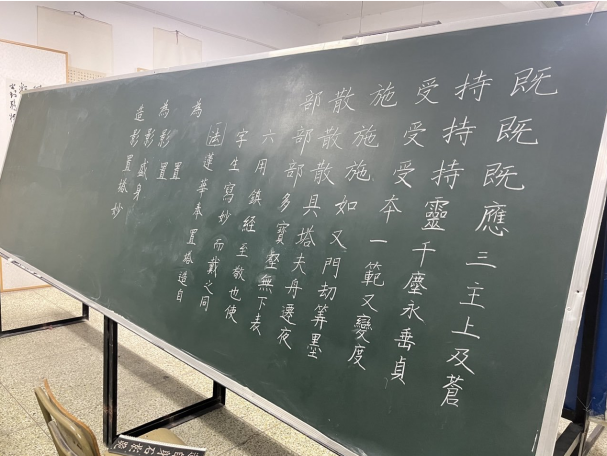 既既既應三主上及蒼
持持持靈千塵永垂貞
受受受本一範又變度
施施施如又門劫筭墨
散散散具塔夫舟遷夜
部部部多寶壑無下表
六用鎮經至敬也使
字生寫妙而載之同
為函蓮華本置塔造自
置
為影置
影盛身
造影置塔妙